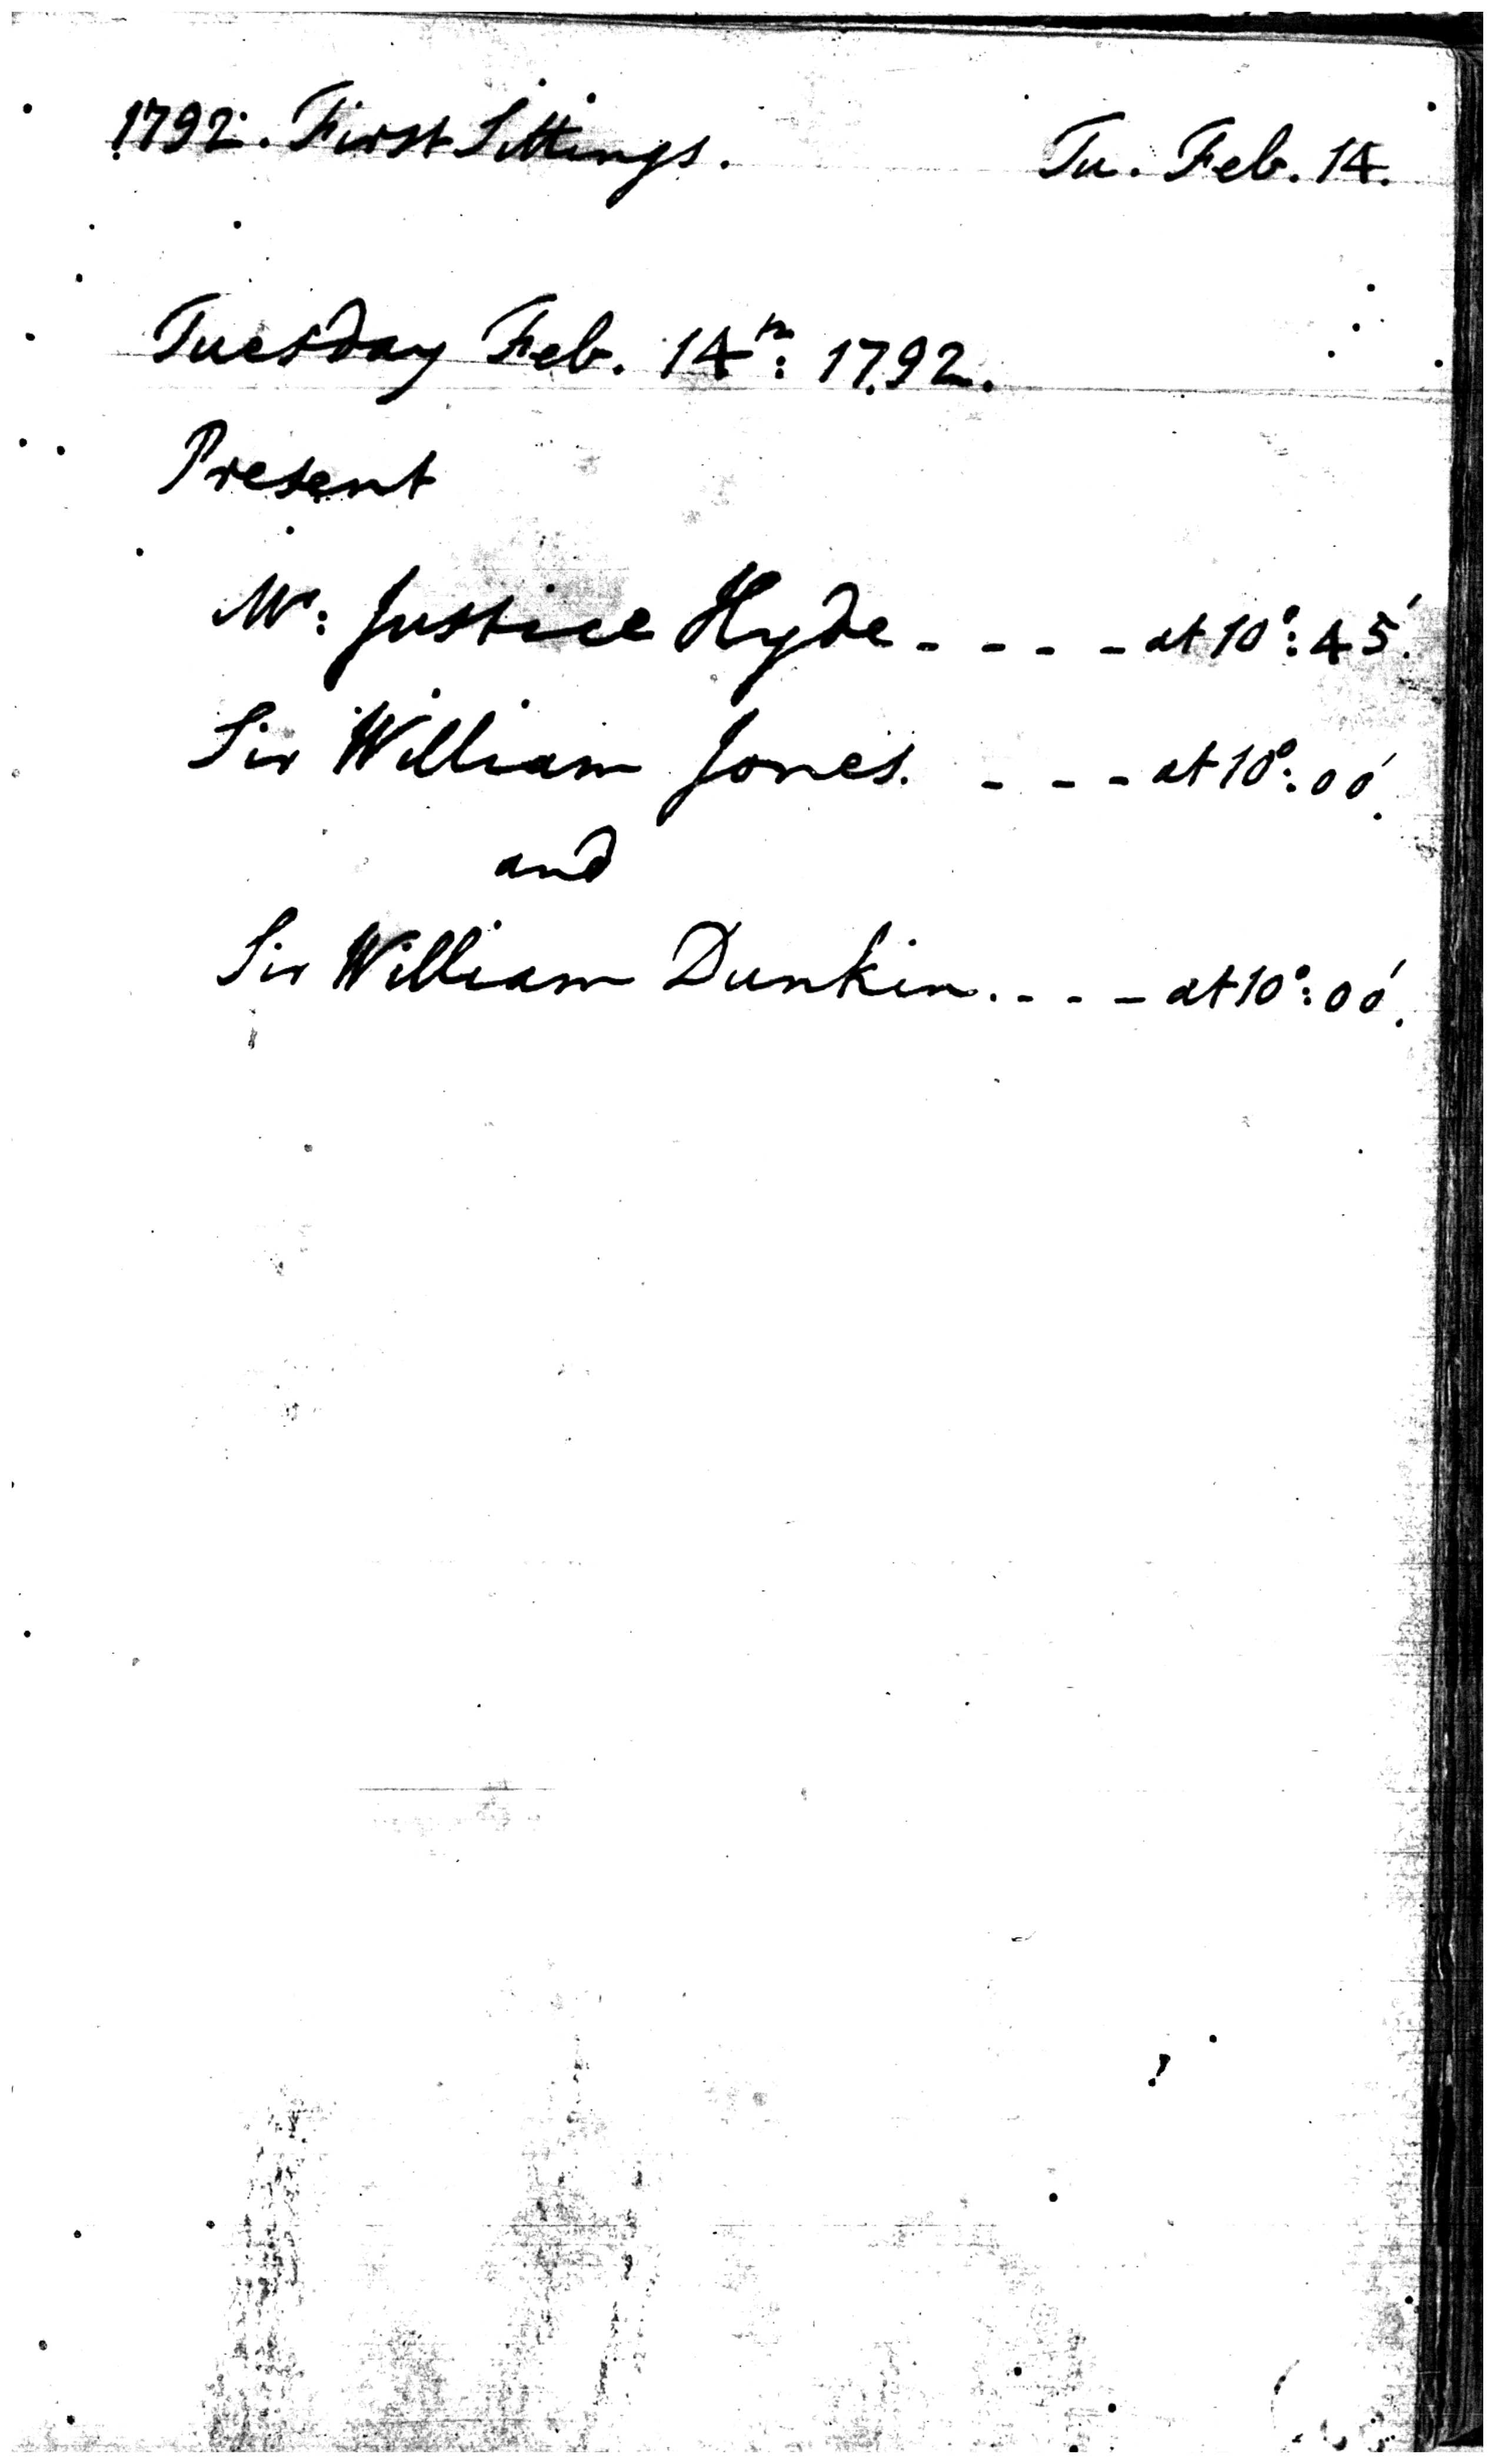 1792. First Sittings. Tu. Feb. 14.
Tuesday Feb. 14th: 1792.
Present
Mr: Justice Hyde - - - - at 10°: 45'.
Sir William Jones. - - - at 10°: 00'.
and
Sir William Dunkin. - - - at 10°: 00'.